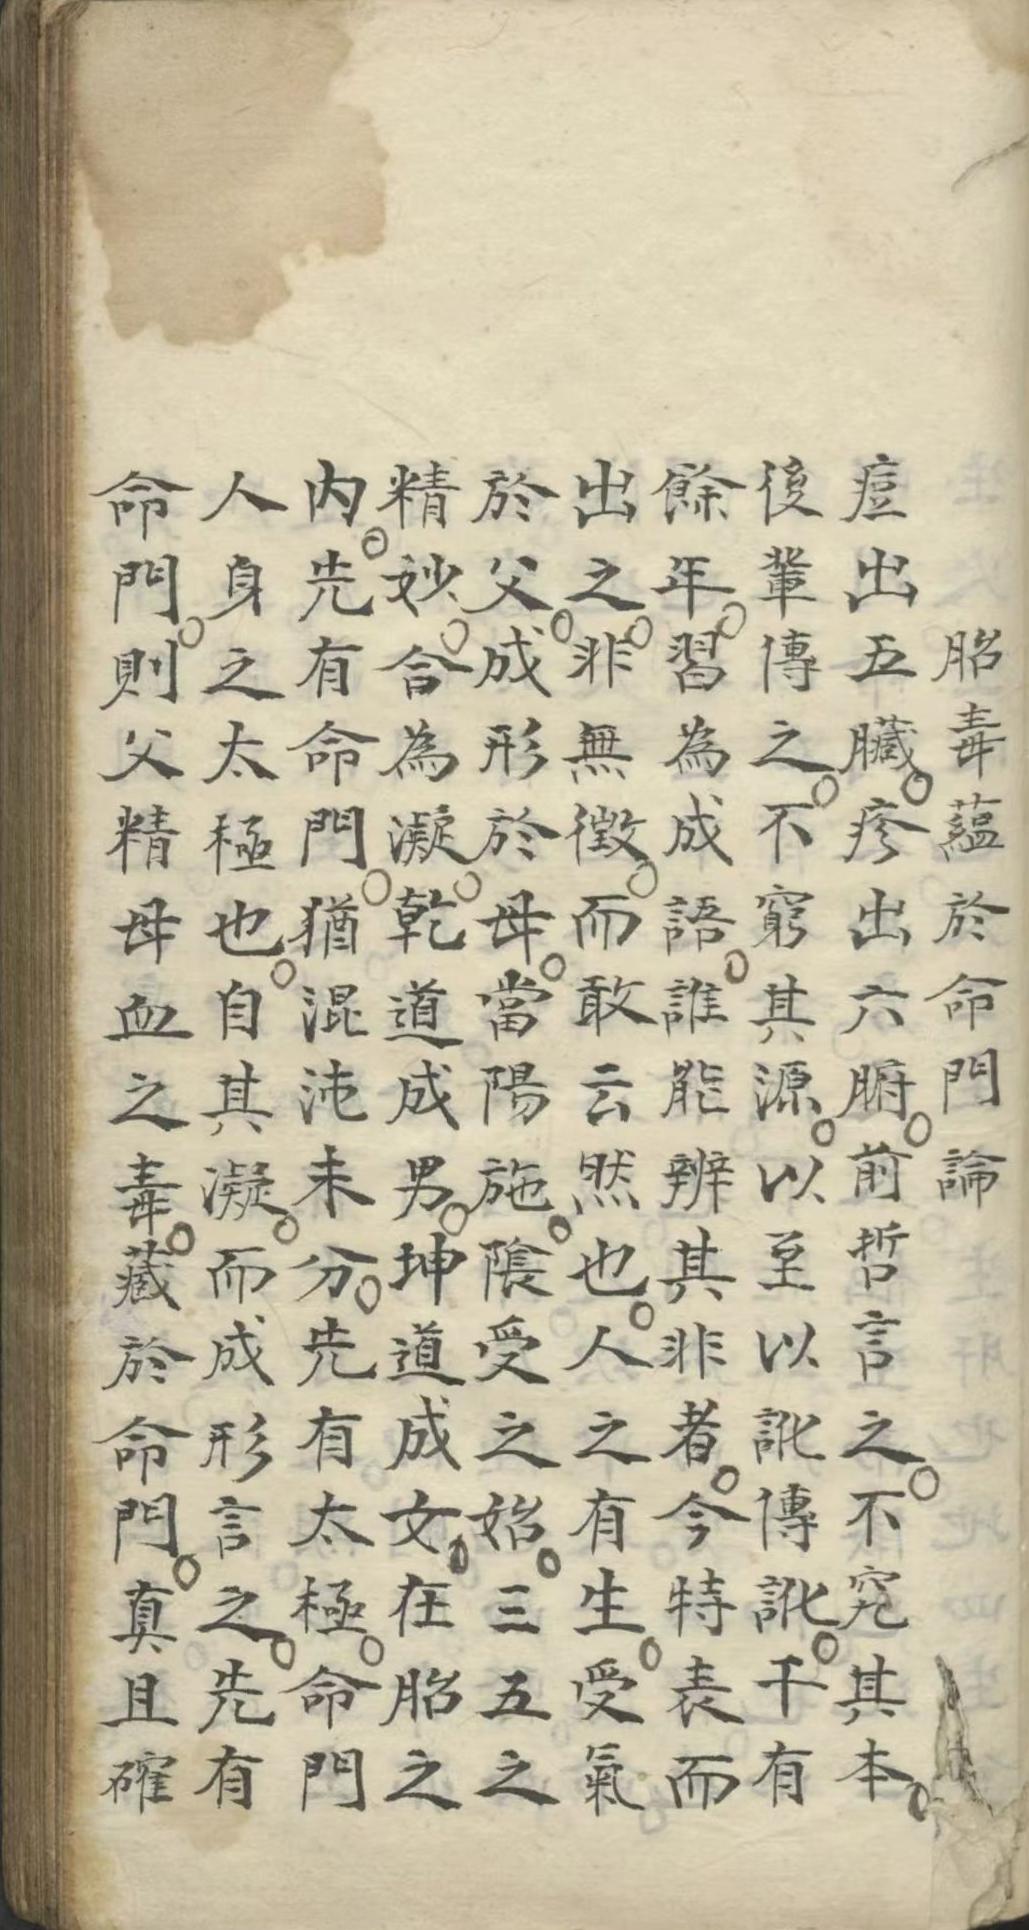 胎毒蘊於命門論
痘出五臟疹出六腑前哲言之不究其本
後輩傳之不窮其源以至以訛傳訛千有
餘年習為成語誰能辨其非者今特表而
出之非無徵而敢云然也人之有生受氣
於父成形於母當陽施陰受之始三五之
精妙合為凝乾道成男坤道成女在胎之
內先有命門猶混沌未分先有太極命門
人身之太極也自其凝而成形言之先有
命門則父精母血之毒藏於命門真且確